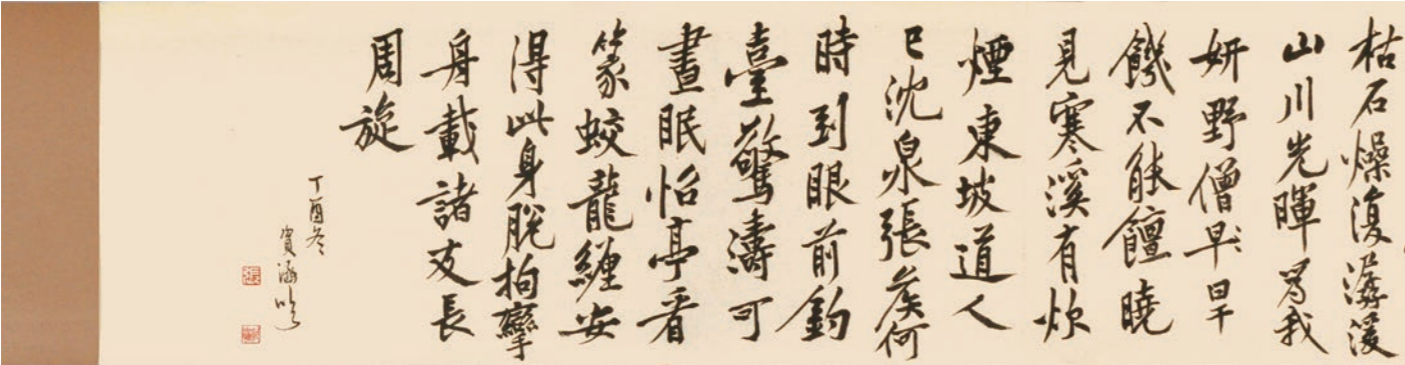 枯石燥復潺湲
山川光暉為我
妍野僧早旱
饑不能饘曉
見寒溪有炊
煙東坡道人
已沈泉張侯何
時到眼前釣
臺驚濤可
晝眠怡亭看
篆蛟龍纏安
得此身脫拘攣
舟載諸友長
周旋
丁酉冬
張